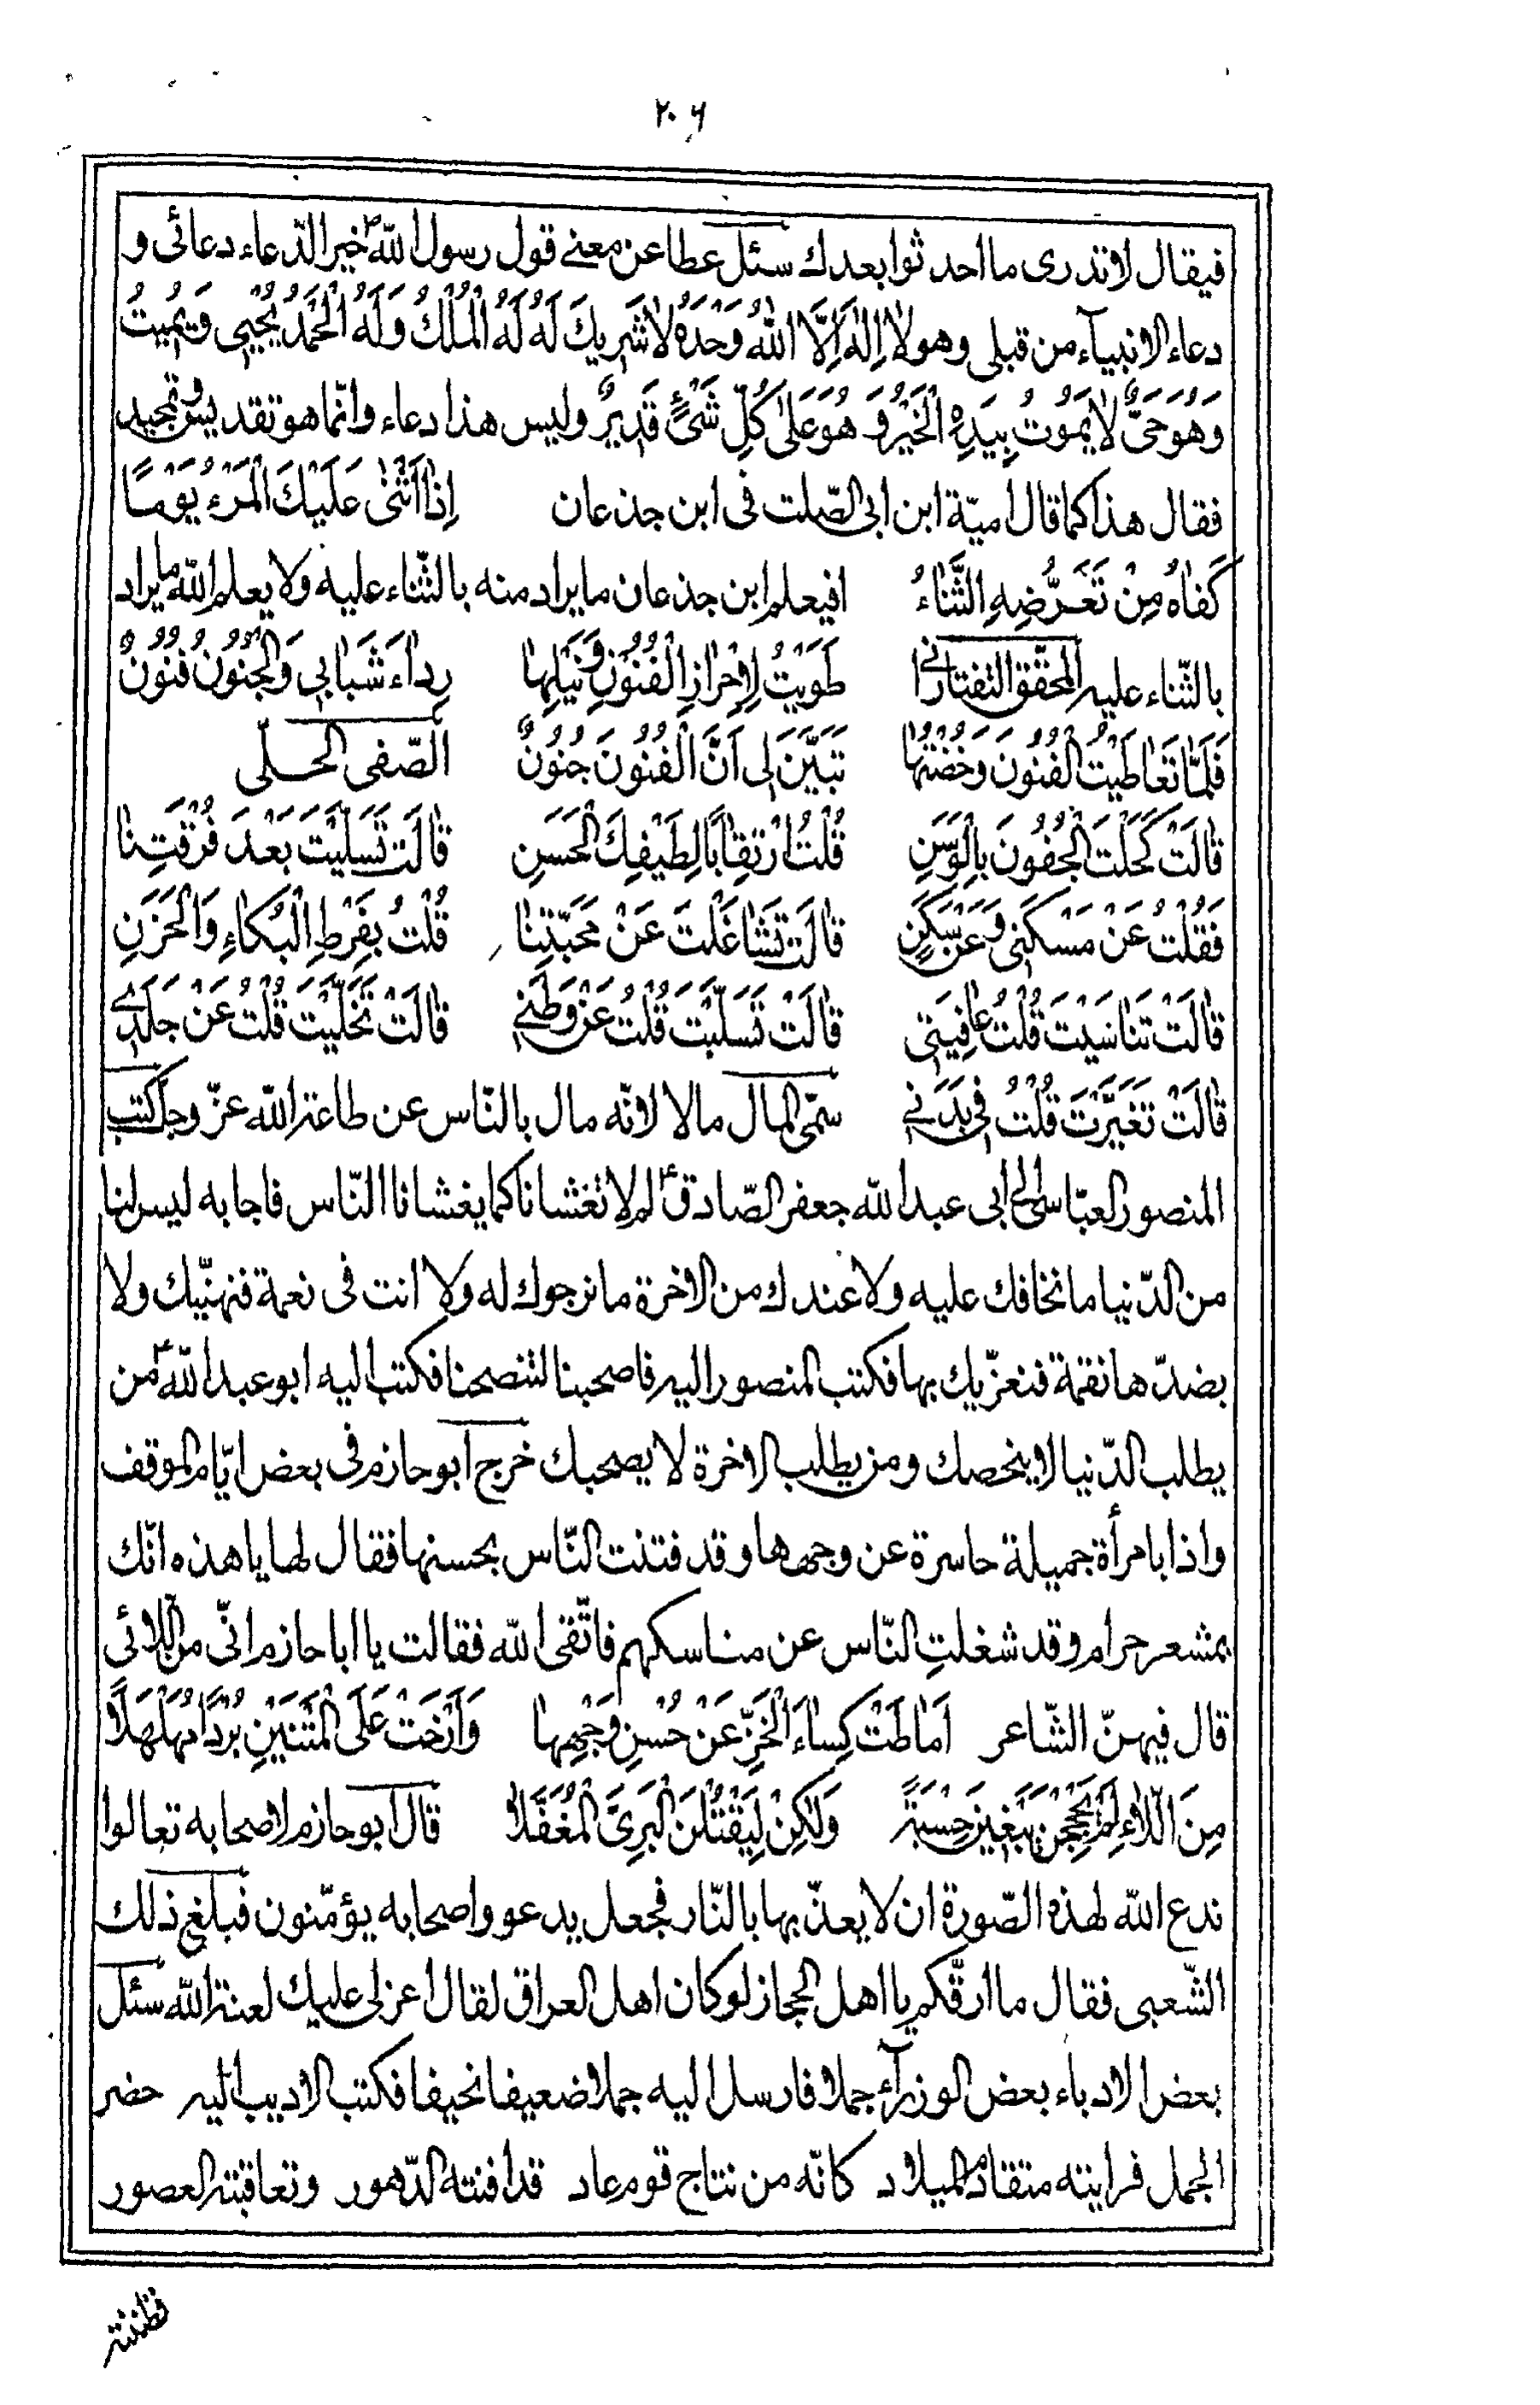 ۲۰۶
فيقال لا تدرى ما احدثوا بعدك سئل عطا عن معنى قول رسول اللّه ص خير الدّعاء دعائى و
دعاء الانبيآء من قبلى و هو لٰا اِلٰهَ اِلَّا اللّٰهُ وَحْدَهُ لٰا شَرِيكَ لَهُ لَهُ الْمُلْكُ وَلَهُ الْحَمْدُ يُحْيِى وَ يُمِيتُ
وَهُوَ حَىٌّ لٰا يَمُوتُ بِيَدِهِ الْخَيْرُ وَ هُوَ عَلىٰ كُلِّ شَىْءٍ قَدِيرٌ و ليس هذا دعاء و انّما هو تقديس و تمجيد
فقال هذا كما قال اميّة ابن ابى الصّلت فى ابن جذعان اِذٰا اَثْنىٰ عَلَيْكَ الْمَرْءُ يَوْمًا
كَفٰاهُ مِنْ تَعَرُّضِهِ الثَّنٰاءُ افيعلم ابن جذعان ما يراد منه بالثّناء عليه ولا يعلم اللّه ما يراد
بالثّناء عليه المحقّق التفتازانى طَوَيْتُ لِاِحْرٰازِ الْفُنُونِ وَ نَيْلِهٰا رِدٰاءَ شَبٰابِي وَالْجُنُونُ فُنُونٌ
فَلَمّٰا تَعٰاطَيْتُ الْفُنُونَ وَخُضْتُهٰا تَبَيَّنَ لِى اَنَّ الْفُنُونَ جُنُونٌ الصّفى الحلّى
قٰالَتْ كَحَلْتَ الْجُفُونَ بِالْوَسَنِ قُلْتُ ارْتِقٰابًا لِطَيْفِكَ الْحَسَنِ قٰالَتْ تَسَلَّيْتَ بَعْدَ فُرْقَتِنٰا
فَقُلْتُ عَنْ مَسْكَنِى وَ عَنْ سَكَنِ قٰالَتْ تَشٰاغَلْتَ عَنْ مَحَبَّتِنٰا قُلْتُ بِفَرْطِ الْبُكٰاءِ وَالْحَزَنِ
قٰالَتْ تَنٰاسَيْتَ قُلْتُ عٰافِيَتِى قٰالَتْ تَسَلَّيْتَ قُلْتُ عَنْ وَطَنِى قٰالَتْ تَخَلَّيْتَ قُلْتُ عَنْ جَلَدِى
قٰالَتْ تَغَيَّرْتَ قُلْتُ فِى بَدَنِى سمّى المال مالا لانّه مال بالنّاس عن طاعة اللّه عزّ وجلّ كتب
المنصور العبّاسى الى ابى عبد اللّه جعفر الصّادق ع لم لا تغشانا كما يغشانا النّاس فاجابه ليس لنا
من الدّنيا ما نخافك عليه ولا عندك من الاخرة ما نرجوك له ولا انت فى نعمة فنهنّيك ولا
بضدّها نقمة فنعزّيك بها فكتب المنصور اليه فاصحبنا لتنصحنا فكتب اليه ابو عبد اللّه ع من
يطلب الدّنيا لا ينصحك و من يطلب الاخرة لا يصحبك خرج ابو حازم فى بعض ايّام الموقف
واذا بامرأة جميلة حاسرة عن وجهها و قد فتنت النّاس بحسنها فقال لها يا هذه انّك
بمشعر حرام و قد شغلتِ النّاس عن مناسكهم فاتّقى اللّه فقالت يا ابا حازم انّى من اللّائى
قال فيهنّ الشّاعر اَمٰاطَتْ كِسٰاءَ الْخَزِّ عَنْ حُسْنِ وَجْهِهٰا وَاَرْخَتْ عَلَى الْمَتْنَيْنِ بُرْدًا مُهَلْهَلًا
مِنَ اللّٰاءِ لَمْ يَحْجُجْنَ يَبْغِينَ حِسْبَةً وَلٰكِنْ لِيَقْتُلْنَ الْبَرِىَّ الْمُغَفَّلٰا قال ابو حازم لاصحابه تعالوا
ندع اللّه لهذه الصّورة ان لا يعذّبها بالنّار فجعل يدعو و اصحابه يؤمّنون فبلغ ذلك
الشّعبى فقال ما ارقّكم يا اهل الحجاز لو كان اهل العراق لقال اعزلى عليك لعنة اللّه سئل
بعض الادباء بعض الوزرآء جملا فارسل اليه جملا ضعيفا نحيفا فكتب الاديب اليه حضر
الجمل فرايته متقادم الميلاد كانّه من نتاج قوم عاد قد افنته الدّهور و تعاقبته العصور
فظننته